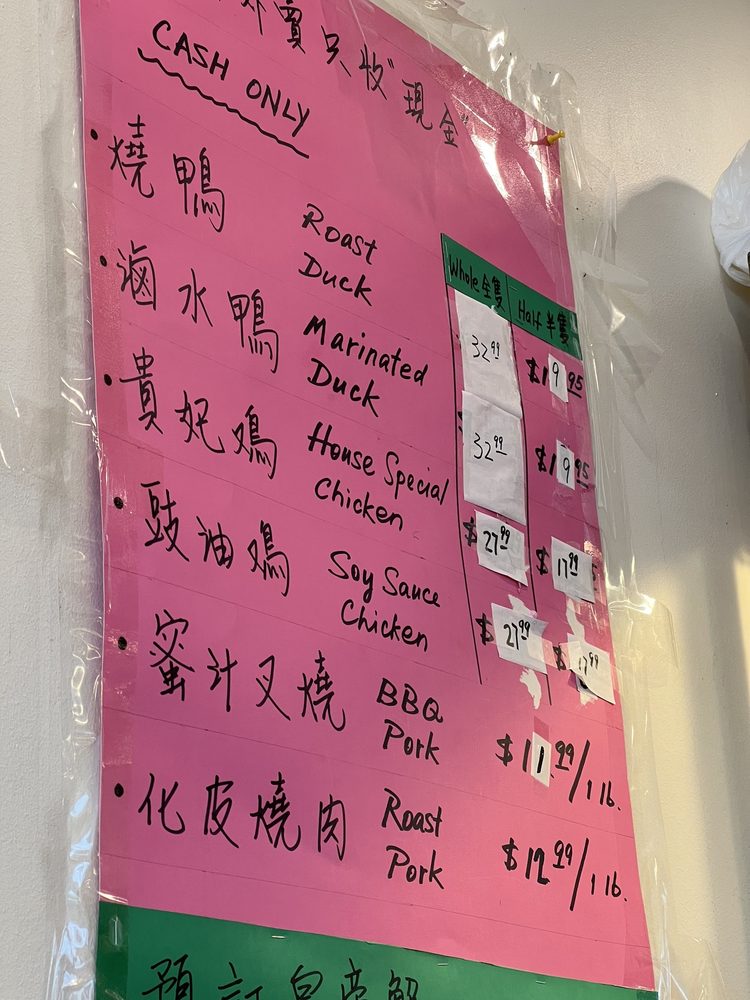 賣只收"現金"
CASH ONLY
Whole全隻 Half半隻
• 燒鴨 Roast Duck 32.99 $19.95
• 滷水鴨 Marinated Duck 32.99 $19.95
• 貴妃鷄 House Special Chicken $27.99 $17.99
• 豉油鷄 Soy Sauce Chicken $27.99 $17.99
• 蜜汁叉燒 BBQ Pork $11.99/1 lb.
• 化皮燒肉 Roast Pork $12.99/1 lb.
預訂